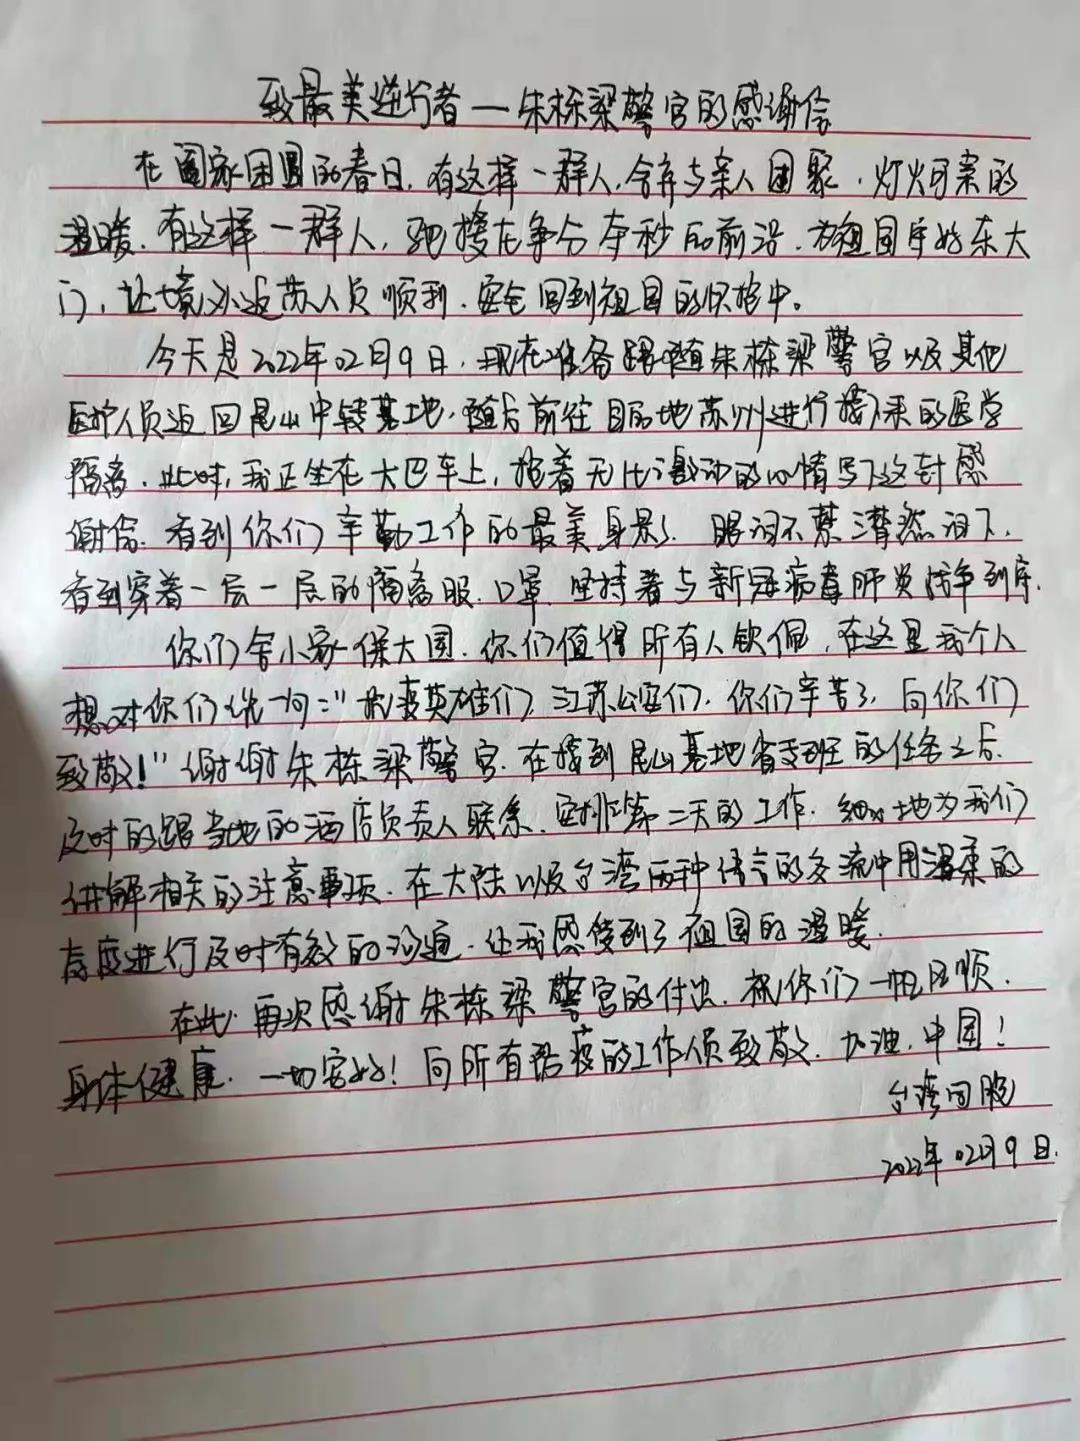 致最美逆行者—朱栋梁警官的感谢信
在阖家团圆的春日,有这样一群人,舍弃与亲人团聚,灯火可亲的
温暖,有这样一群人,驰援在争分夺秒的前沿,为祖国守好东大
门,让境外返苏人员顺利,安全回到祖国的怀抱中。
今天是2022年02月9日,现在准备跟随朱栋梁警官以及其他
医护人员返回昆山中转基地,随后前往目的地苏州进行接下来的医学
隔离,此时,我正坐在大巴车上,抱着无比激动的心情写下这封感
谢信.看到你们辛勤工作的最美身影,眼泪不禁潸然泪下,
看到穿着一层一层的隔离服,口罩,坚持着与新冠病毒肺炎战争到底.
你们舍小家保大国,你们值得所有人钦佩,在这里我个人
想对你们说一句:"抗疫英雄们,江苏公安们,你们辛苦了,向你们
致敬!"谢谢朱栋梁警官,在接到昆山基地省专班的任务之后,
及时的跟当地的酒店负责人联系,安排第二天的工作,细心地为我们
讲解相关的注意事项,在大陆以及台湾两种语言的交流中用温柔的
态度进行及时有效的沟通,让我感受到了祖国的温暖.
在此,再次感谢朱栋梁警官的付出,祝你们一帆风顺,
身体健康,一切安好!向所有防疫的工作人员致敬,加油,中国!
台湾同胞
2022年02月9日.